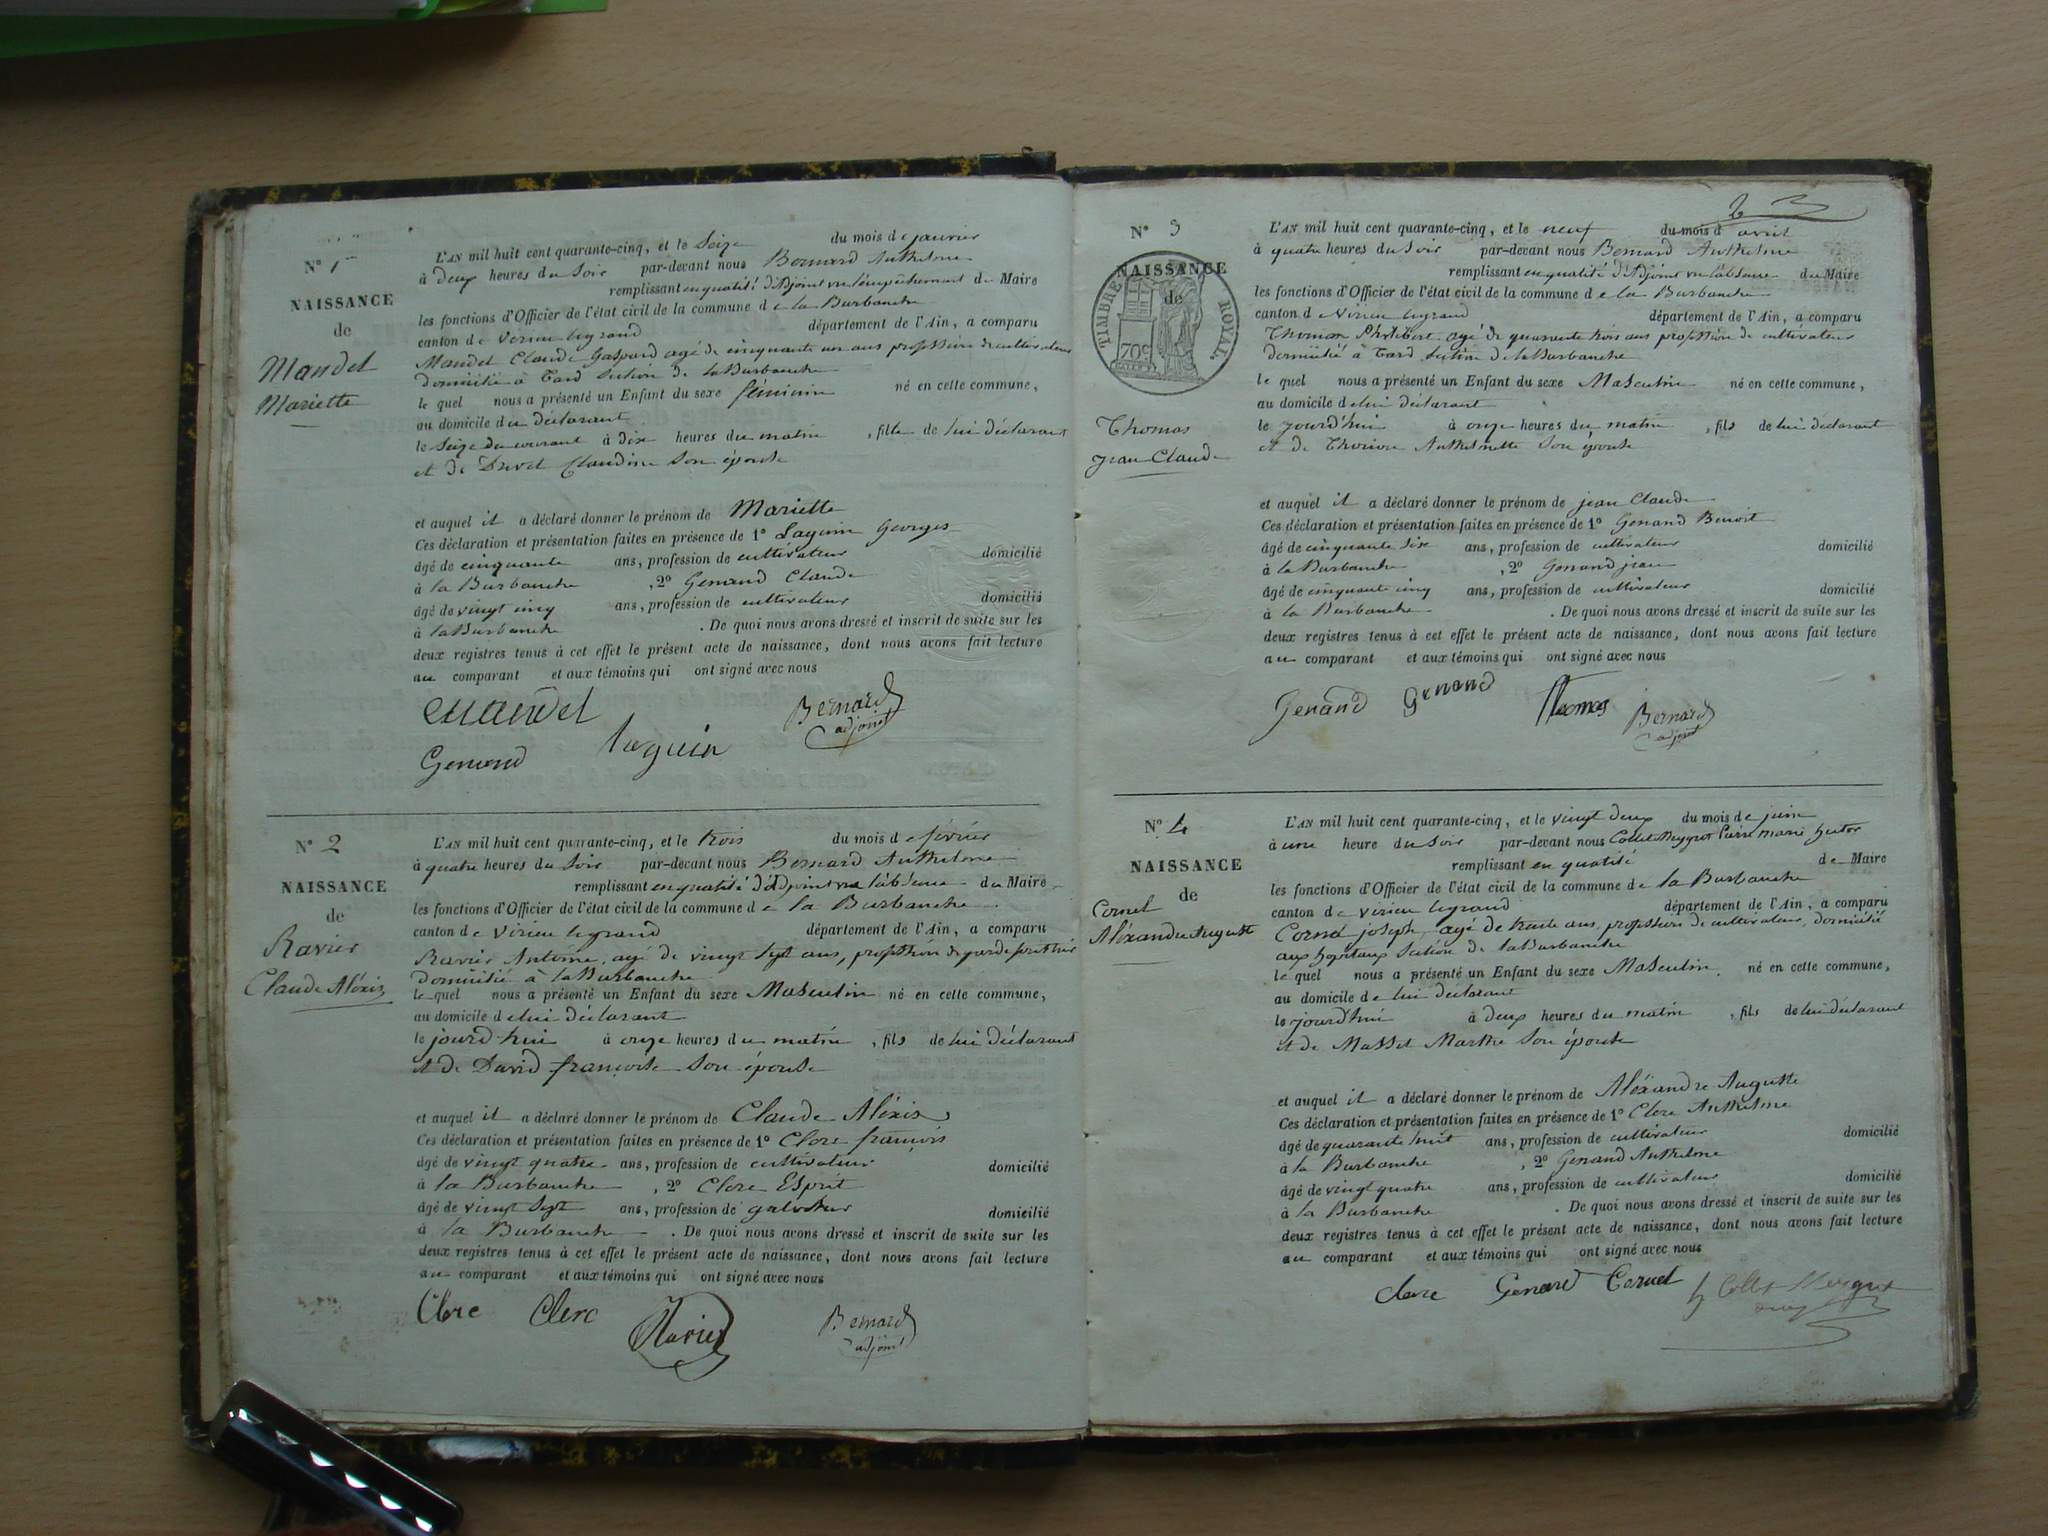 N° 1er
NAISSANCE
de
Mandel
Mariette
L'AN mil huit cent quarante-cinq, et le Seize du mois de janvier
à deux heures du Soir par-devant nous Bernard Anthelme
remplissant en qualité d'Adjoint vu l'empêchement du Maire
les fonctions d'Officier de l'état civil de la commune de la Burbanche
canton de Virieu legrand département de l'Ain, a comparu
Mandel Claude Gaspard agé de cinquante un ans profession de cultivateur
domicilié à Tard Section de la Burbanche
le quel nous a présenté un Enfant du sexe féminin né en cette commune,
au domicile du déclarant
le Seize du courant à dix heures du matin, fille de lui déclarant
et de Duvel Claudine Son épouse
et auquel il a déclaré donner le prénom de Mariette
Ces déclaration et présentation faites en présence de 1° Laguin Georges
âgé de cinquante ans, profession de cultivateur domicilié
à la Burbanche, 2° Genand Claude
âgé de vingt cinq ans, profession de cultivateur domicilié
à la Burbanche. De quoi nous avons dressé et inscrit de suite sur les
deux registres tenus à cet effet le présent acte de naissance, dont nous avons fait lecture
au comparant et aux témoins qui ont signé avec nous
Mandel Bernard
adjoint
Genand laguin
N° 2
NAISSANCE
de
Ravier
Claude Aléxis
L'AN mil huit cent quarante-cinq, et le trois du mois de février
à quatre heures du Soir par-devant nous Bernard Anthelme
remplissant en qualité d'Adjoint vu l'absence du Maire
les fonctions d'Officier de l'état civil de la commune de la Burbanche
canton de Virieu legrand département de l'Ain, a comparu
Ravier Antoine, agé de vingt Sept ans, profession de garde forestier
domicilié à la Burbanche
le quel nous a présenté un Enfant du sexe Masculin né en cette commune,
au domicile de lui déclarant
le jourd'hui à onze heures du matin, fils de lui déclarant
et de David françoise Son épouse
et auquel il a déclaré donner le prénom de Claude Aléxis
Ces déclaration et présentation faites en présence de 1° Clerc françois
âgé de vingt quatre ans, profession de cultivateur domicilié
à la Burbanche, 2° Clerc Esprit
âgé de vingt Sept ans, profession de domicilié
à la Burbanche. De quoi nous avons dressé et inscrit de suite sur les
deux registres tenus à cet effet le présent acte de naissance, dont nous avons fait lecture
au comparant et aux témoins qui ont signé avec nous
Clerc Clerc Ravier Bernard
adjoint
2
N° 3
NAISSANCE
de
TIMBRE ROYAL
70c
Thomas
Jean Claude
L'AN mil huit cent quarante-cinq, et le neuf du mois d'avril
à quatre heures du Soir par-devant nous Bernard Anthelme
remplissant en qualité d'Adjoint vu l'absence du Maire
les fonctions d'Officier de l'état civil de la commune de la Burbanche
canton de Virieu legrand département de l'Ain, a comparu
Thomas Philibert agé de quarante trois ans profession de cultivateur
domicilié à Tard Section de la Burbanche
le quel nous a présenté un Enfant du sexe Masculin né en cette commune,
au domicile de lui déclarant
le jourd'hui à onze heures du matin, fils de lui déclarant
et de Anthelmette Son épouse
et auquel il a déclaré donner le prénom de jean Claude
Ces déclaration et présentation faites en présence de 1° Genand Benoit
âgé de cinquante Six ans, profession de cultivateur domicilié
à la Burbanche, 2° Genand jean
âgé de cinquante cinq ans, profession de cultivateur domicilié
à la Burbanche. De quoi nous avons dressé et inscrit de suite sur les
deux registres tenus à cet effet le présent acte de naissance, dont nous avons fait lecture
au comparant et aux témoins qui ont signé avec nous
Genand Genand Thomas Bernard
adjoint
N° 4
NAISSANCE
de
Cornel
Aléxandre Auguste
L'AN mil huit cent quarante-cinq, et le vingt deux du mois de juin
à une heure du Soir par-devant nous Collet Meygret Pierre marie hector
remplissant en qualité de Maire
les fonctions d'Officier de l'état civil de la commune de la Burbanche
canton de Virieu legrand département de l'Ain, a comparu
Cornel joseph, agé de trente ans, profession de cultivateur, domicilié
aux hopitaux Section de la Burbanche
le quel nous a présenté un Enfant du sexe Masculin né en cette commune,
au domicile de lui déclarant
le jourd'hui à deux heures du matin, fils de lui déclarant
et de Masset Marthe Son épouse
et auquel il a déclaré donner le prénom de Aléxandre Auguste
Ces déclaration et présentation faites en présence de 1° Clerc Anthelme
âgé de quarante huit ans, profession de cultivateur domicilié
à la Burbanche, 2° Genand Anthelme
âgé de vingt quatre ans, profession de cultivateur domicilié
à la Burbanche. De quoi nous avons dressé et inscrit de suite sur les
deux registres tenus à cet effet le présent acte de naissance, dont nous avons fait lecture
au comparant et aux témoins qui ont signé avec nous
clerc Genand Cornel h Collet Meygret